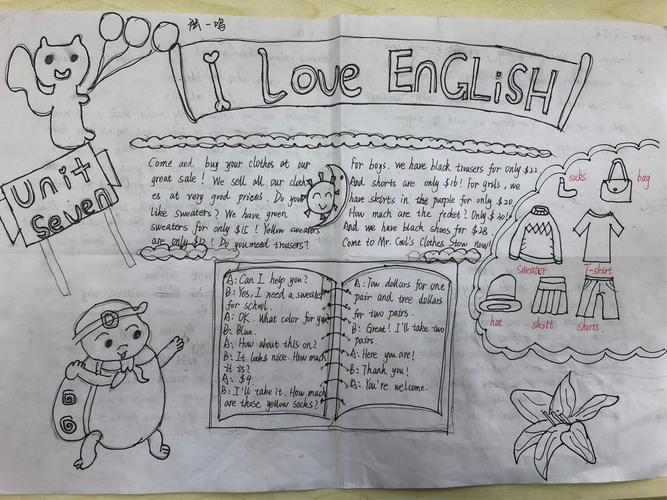 张一鸣
I Love EnGLiSH
Unit
Seven
Come and buy your clothes at our
great sale! We sell all our cloth
es at very good prices. Do you
like sweaters? We have green
sweaters for only $15! Yellow sweaters
are only $12! Do you need trousers?
For boys. we have black trousers for only $22.
And shorts are only $16! for grils. we
have skeirts in the purple for only $20.
How much are the jecket? Only $30!
And we have black shoes for $28.
Come to Mr. Cool's Clothes Stow now!
socks
bag
sweater
T-shirt
hat
skitt
shorts
A: Can I help you?
B: Yes, I need a sweater
for school.
A: OK. What color for you
B: Blue.
A: How about this on?
B: It looks nice. How much
it is?
A: $9.
B: I'll take it. How much
are those yellow socks?
A: Tow dollars for one
pair and tree dollars
for two pairs.
B: Great! I'll take two
pairs.
A: Here you are!
B: Thank you!
A: You're welcome.